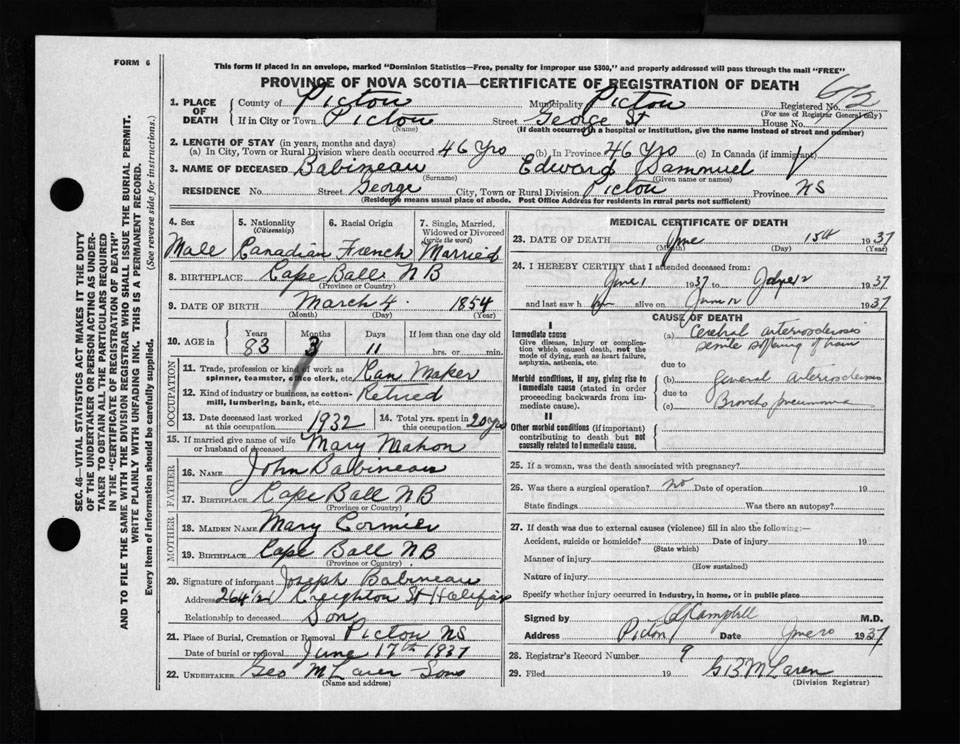 FORM 6
This form if placed in an envelope, marked "Dominion Statistics—Free, penalty for improper use $300," and properly addressed will pass through the mail "FREE"
PROVINCE OF NOVA SCOTIA—CERTIFICATE OF REGISTRATION OF DEATH
1. PLACE OF DEATH
County of Pictou Municipality Pictou Registered No. 
(For use of Registrar General only)
If in City or Town Pictou Street George St House No.
(Name) (If death occurred in a hospital or institution, give the name instead of street and number)
2. LENGTH OF STAY (in years, months and days)
(a) In City, Town or Rural Division where death occurred 46 Yrs (b) In Province 46 Yrs (c) In Canada (if immigrant)
3. NAME OF DECEASED Babineau Edward Sammuel
(Surname) (Given name or names)
RESIDENCE No. Street George City, Town or Rural Division Pictou Province NS
(Residence means usual place of abode. Post Office Address for residents in rural parts not sufficient)
4. Sex 5. Nationality (Citizenship) 6. Racial Origin 7. Single, Married, Widowed or Divorced (write the word)
Male Canadian French Married
8. BIRTHPLACE Cape Ball NB
(Province or Country)
9. DATE OF BIRTH March 4 1854
(Month) (Day) (Year)
10. AGE in Years Months Days If less than one day old
83 3 11 hrs. or min.
OCCUPATION
11. Trade, profession or kind of work as spinner, teamster, office clerk, etc. Can Maker
12. Kind of industry or business, as cotton-mill, lumbering, bank, etc. Retired
13. Date deceased last worked at this occupation 1932 14. Total yrs. spent in this occupation 20 yrs
15. If married give name of wife or husband of deceased Mary Mahon
FATHER
16. NAME John Babineau
17. BIRTHPLACE Cape Ball NB
(Province or Country)
MOTHER
18. MAIDEN NAME Mary Cormier
19. BIRTHPLACE Cape Ball NB
(Province or Country)
20. Signature of informant Joseph Babineau
Address Creighton St Halifax
Relationship to deceased Son
21. Place of Burial, Cremation or Removal Pictou NS
Date of burial or removal June 17th 1937
22. UNDERTAKER Geo McLaren Sons
(Name and address)
MEDICAL CERTIFICATE OF DEATH
23. DATE OF DEATH June 15th 1937
(Month) (Day) (Year)
24. I HEREBY CERTIFY that I attended deceased from:
June 1 1937 to 1937
and last saw h alive on June 12 1937
CAUSE OF DEATH
I
Immediate cause
Give disease, injury or complication which caused death, not the mode of dying, such as heart failure, asphyxia, asthenia, etc.
(a) Cerebral arteriosclerosis
senile softening of brain
due to
Morbid conditions, if any, giving rise to immediate cause (stated in order proceeding backwards from immediate cause).
(b) general arteriosclerosis
due to
(c) Broncho pneumonia
II
Other morbid conditions (if important) contributing to death but not causally related to immediate cause.
25. If a woman, was the death associated with pregnancy?
26. Was there a surgical operation? no Date of operation 19
State findings Was there an autopsy?
27. If death was due to external causes (violence) fill in also the following:—
Accident, suicide or homicide? Date of injury 19
(State which)
Manner of injury
(How sustained)
Nature of injury
Specify whether injury occurred in industry, in home, or in public place
Signed by Campbell M.D.
Address Pictou Date June 1937
28. Registrar's Record Number 9
29. Filed 19 G B McLaren
(Division Registrar)
SEC. 46—VITAL STATISTICS ACT MAKES IT THE DUTY
OF THE UNDERTAKER OR PERSON ACTING AS UNDER-
TAKER TO OBTAIN ALL THE PARTICULARS REQUIRED
IN THE "CERTIFICATE OF REGISTRATION OF DEATH"
AND TO FILE THE SAME WITH THE DIVISION REGISTRAR WHO SHALL ISSUE THE BURIAL PERMIT.
WRITE PLAINLY WITH UNFADING INK. THIS IS A PERMANENT RECORD.
Every item of information should be carefully supplied. (See reverse side for instructions.)